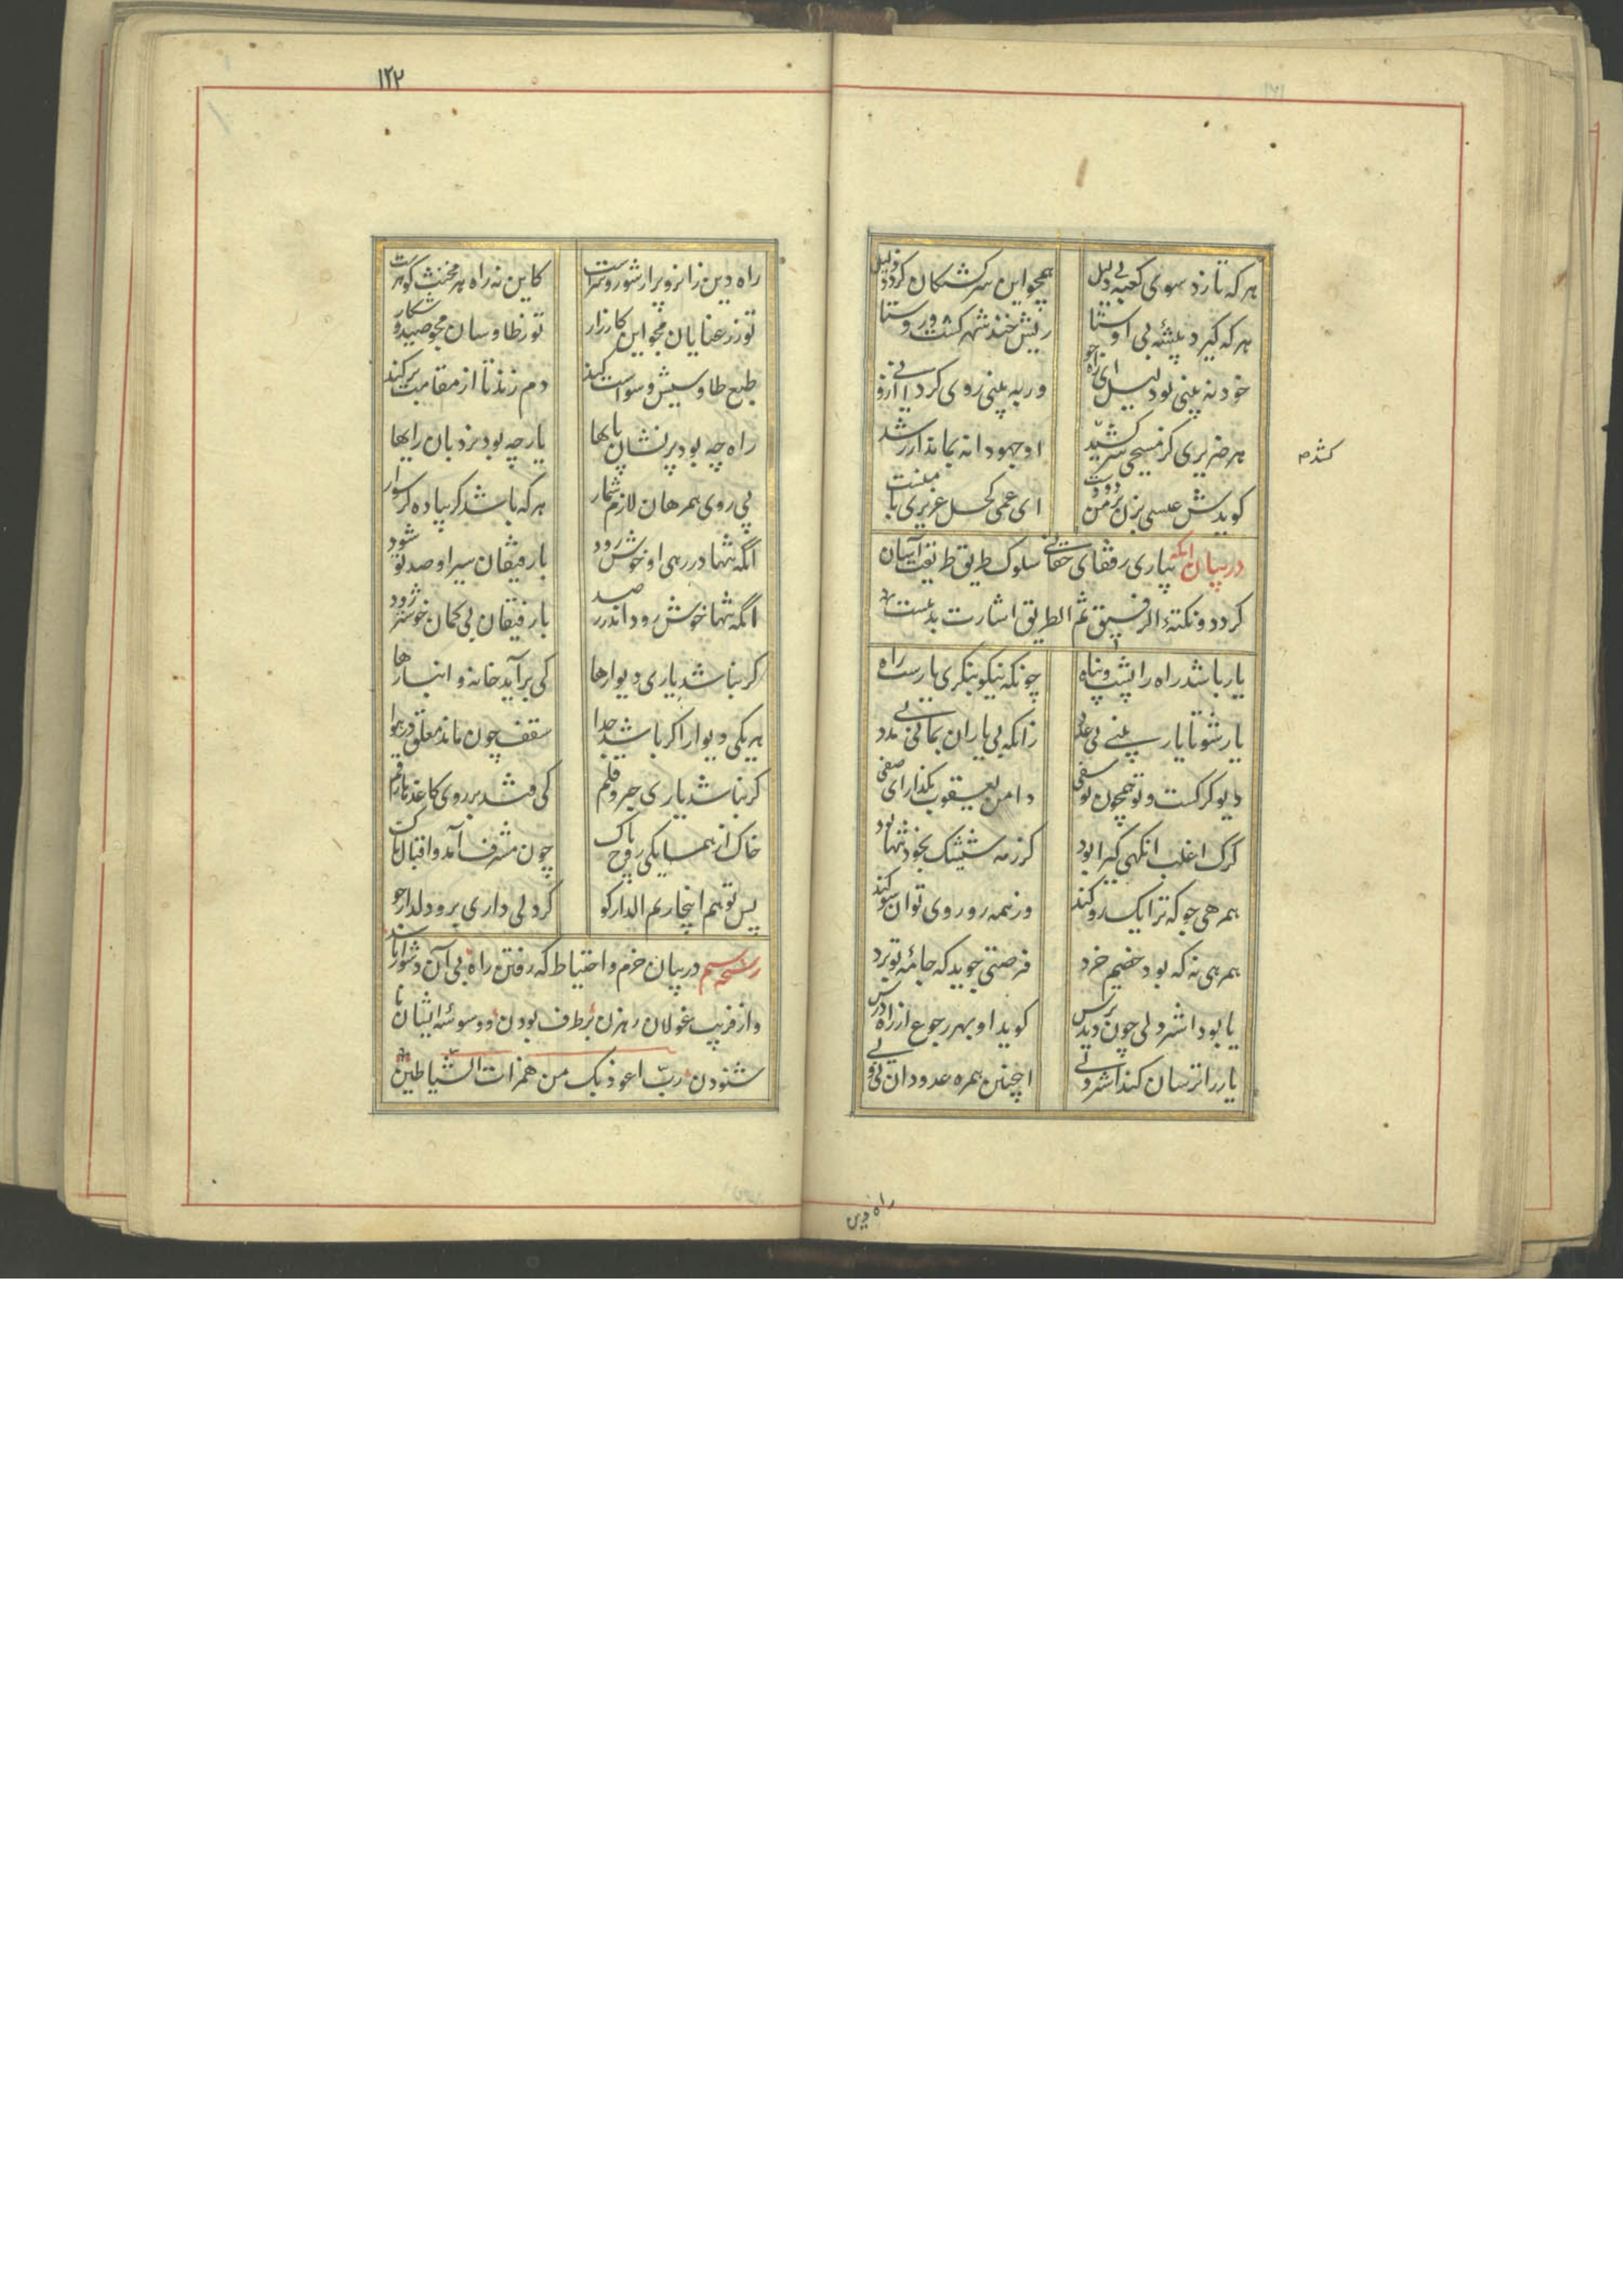 هر که تازد سوی کعبه بی دلیل همچو این سرکشتکان کردد ذلیل
هر که کیرد پیشهٔ بی اوستا ریش خند شهر کشت و روستا
خود نه بینی بود لیل ای راه جو ور به بینی روی کردانی ازو
هر ضریری کز مسیحی سر کشید او جهودانه بماند از رشد
کویدش عیسی بزن بر من دو دست ای عمی کحل عزیزی با منست
کشد م
در بیان آنکه بیاری رفقای حقانی سلوک طریق طریقت آسان
کردد و نکتهٔ الرفیق ثم الطریق اشارت بدینست
یار باشد راه را پشت و پناه چونکه نیکو بنکری یار ست راه
یار شو تا یار بینی بی عدد زانکه بی یاران بمانی بی مدد
دیو کرکست و تو همچون یوسفی دامن یعقوب مکذار ای صفی
کرک اغلب انکهی کیرا بود کز رمه شیشک بخود تنها بود
همرهی جو که ترا یک رو کند ور نه همه رو روی تو آن سو کند
همرهی نه که بود خصم خرد فرصتی جوید که جامهٔ تو برد
یا بود اشتر دلی چون دید ترس کوید او بهر رجوع از راه درس
یار را ترسان کند اشتر دلی اینچنین همره عدو دان نی ولی
راه دین
۱۲۲
راه دین زانرو پر از شور و شرست کاین نه راه هر مخنث کوهرست
تو ز رعنایان مجو این کارزار تو ز طاوسان مجو صید و شکار
طبع طاوسیش وسواست کند دم زند تا از مقامت بر کند
راه چه بود پر نشان پایها یار چه بود نردبان رایها
پی روی همرهان لازم شمار هر که باشد کر پیاده کر سوار
آنکه تنها در رهی او خوش رود با رفیقان سیر او صد تو شود
آنکه تنها خوش رود اندر رصد با رفیقان بی کمان خوشتر رود
کر نباشد یاری دیوارها کی برآید خانه و انبارها
هر یکی دیوار اکر باشد جدا سقف چون ماند معلق در هوا
کر نباشد یاری حبر و قلم کی فتد بر روی کاغذها رقم
خاک از همسایکی روح پاک چون مشرف آمد و اقبال ناک
پس تو هم الجار ثم الدار کو کر دلی داری برو دلدار جو
رشحه سیم در بیان حزم و احتیاط که رفتن راه بی آن دشوار
و از فریب غولان رهزن برطرف بودن و وسوسهٔ ایشان نا
شنودن ربّ اعوذ بک من همزات الشیاطین